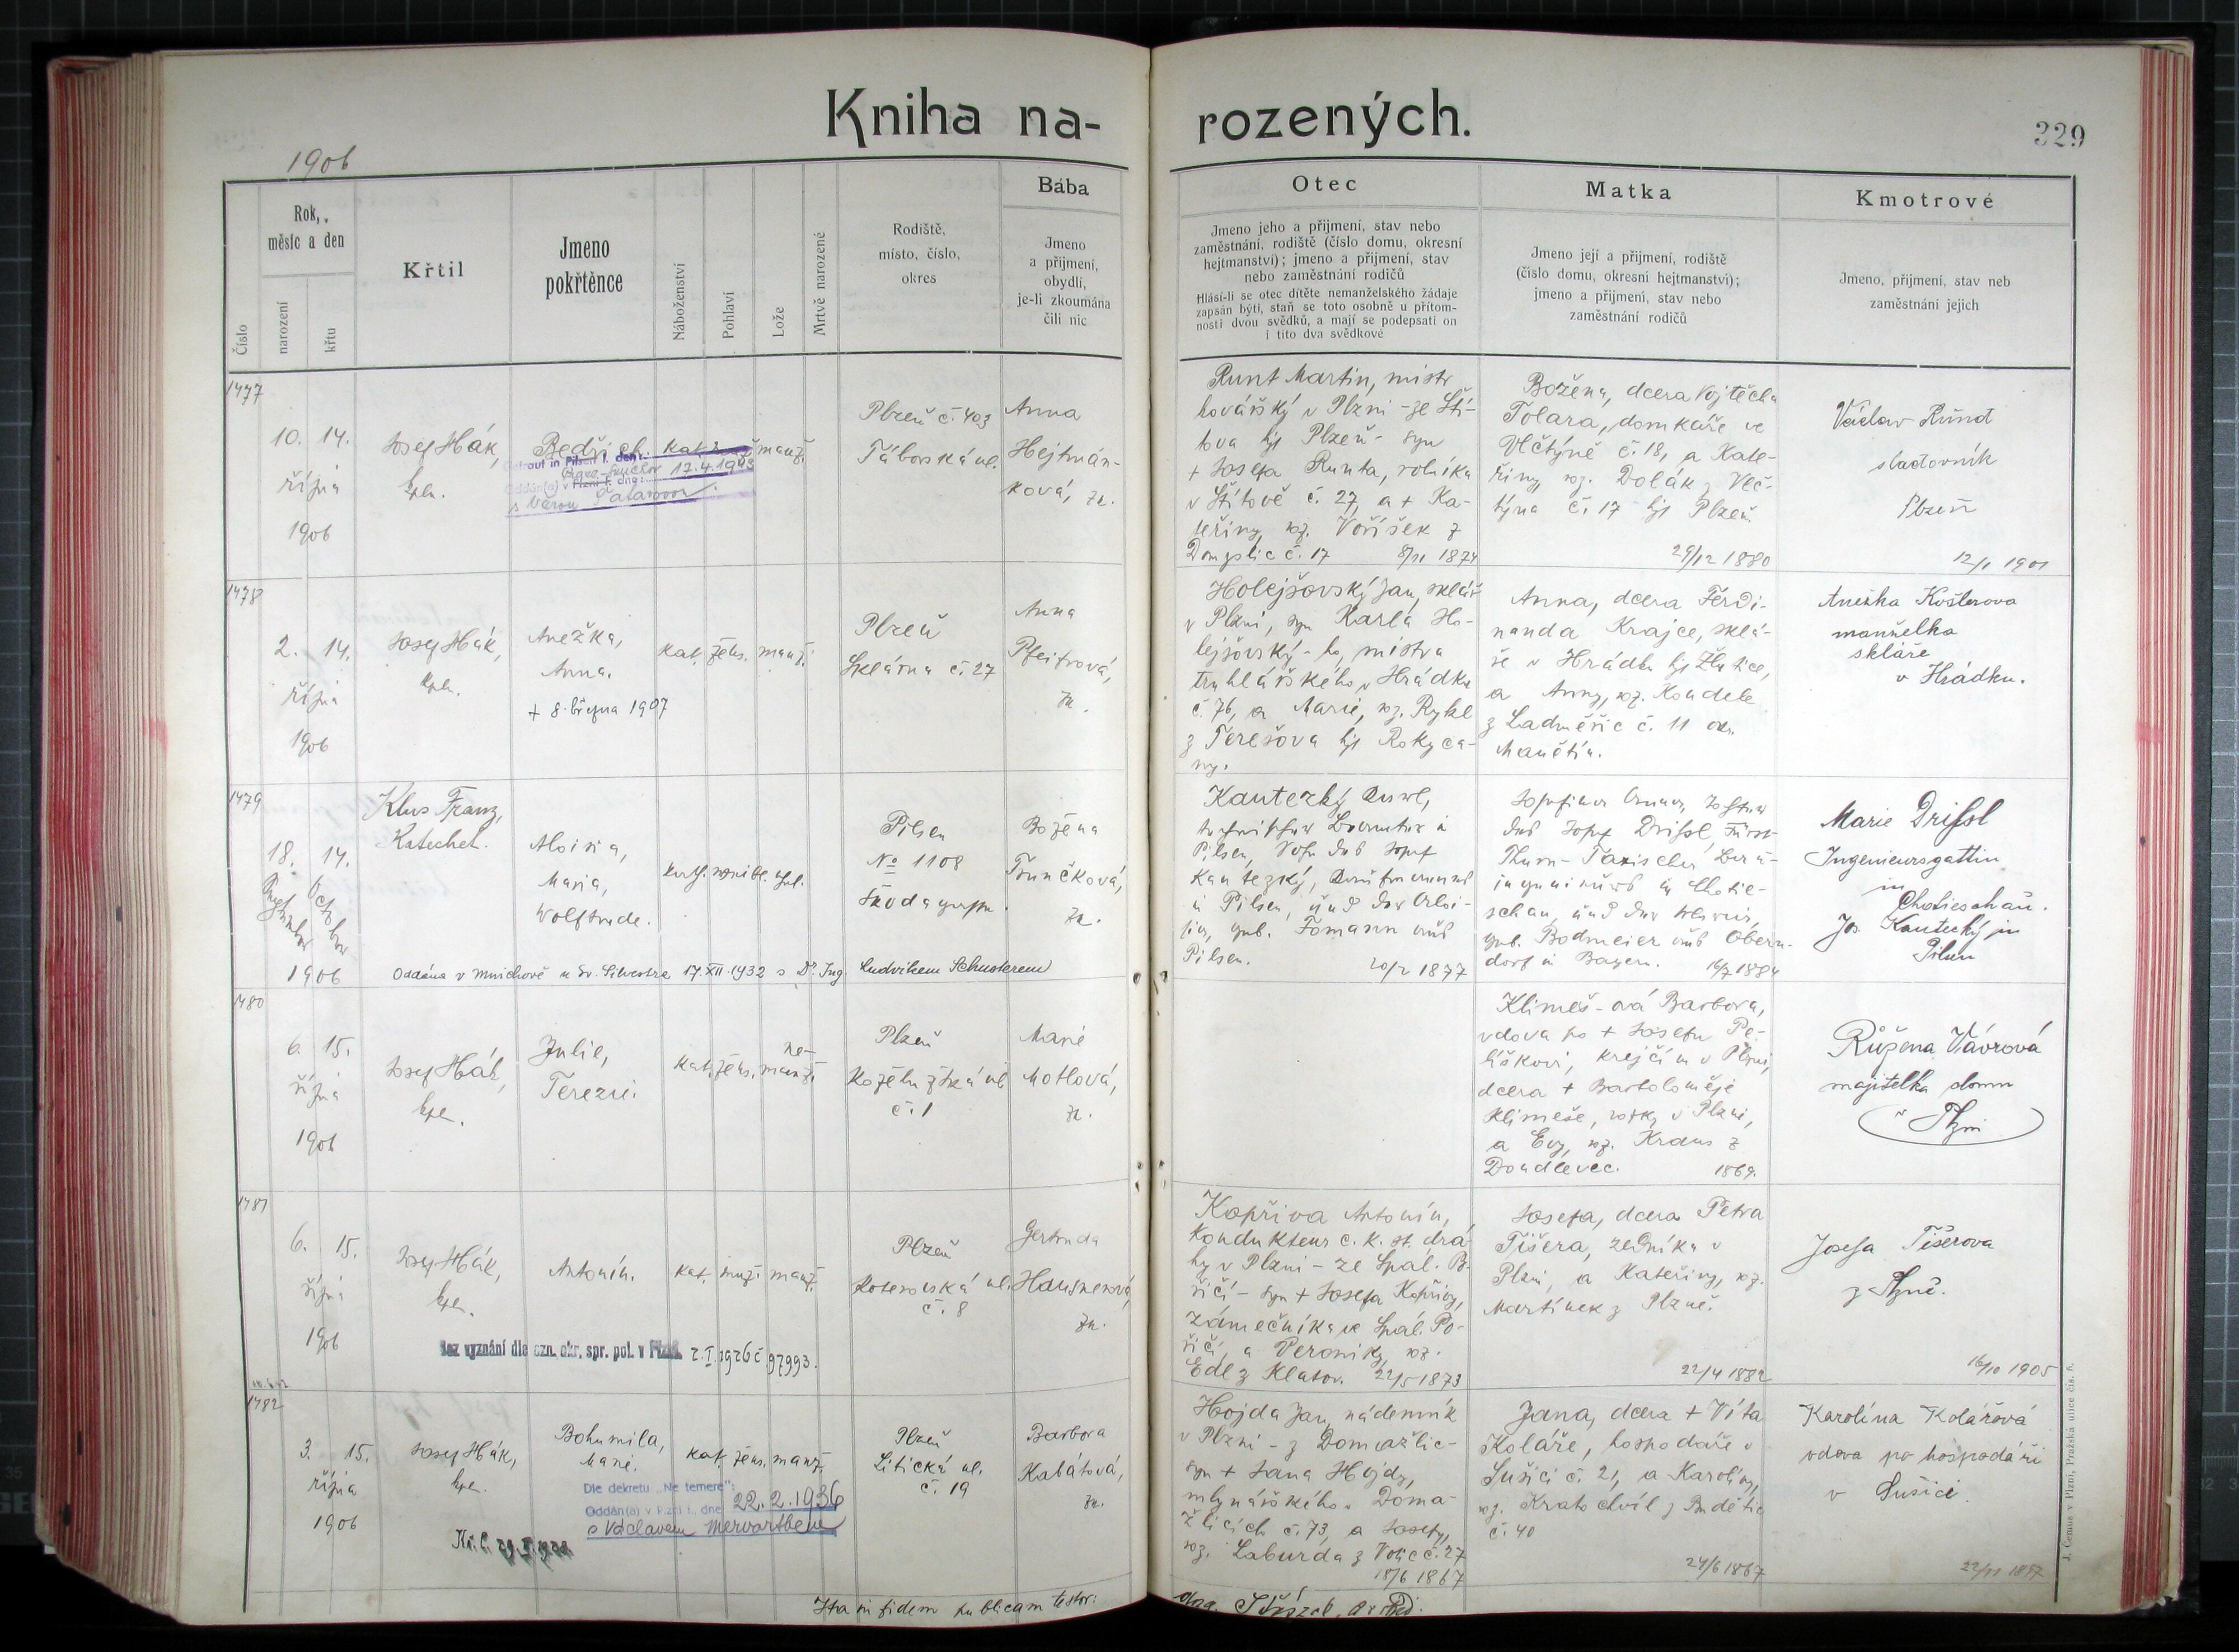 Kniha na-
rozených.
329
1906
Číslo
Rok,
měsíc a den
narození
křtu
Křtil
Jmeno
pokřtěnce
Náboženství
Pohlaví
Lože
Mrtvě narozené
Rodiště,
místo, číslo,
okres
Bába
Jmeno
a příjmení,
obydlí,
je-li zkoumána
čili nic
Otec
Jmeno jeho a přijmení, stav nebo
zaměstnání, rodiště (číslo domu, okresní
hejtmanství); jmeno a přijmení, stav
nebo zaměstnání rodičů
Hlásí-li se otec dítěte nemanželského žádaje
zapsán býti, staň se toto osobně u přítom-
nosti dvou svědků, a mají se podepsati on
i tito dva svědkové
Matka
Jmeno její a přijmení, rodiště
(číslo domu, okresní hejtmanství);
jmeno a přijmení, stav nebo
zaměstnání rodičů
Kmotrové
Jmeno, přijmení, stav neb
zaměstnání jejich
1477
10. 14.
října
1906
Josef Hák,
kpln.
Bedřich.
kat.
manž.
Getraut in Pilsen I. den:
17.4.1943
Oddán(a) v Plzni I. dne:
s Věrou
Plzeň č. 403
Táborská ul.
Anna
Hejtmán-
ková, zk.
Runt Martin, mistr
kovářský v Plzni - ze Ští-
tova hjt Plzeň - syn
+ Josefa Runta, rolníka
v Štítově č. 27, a + Ka-
teřiny, roz. Voříšek z
č. 17 8/11 1874
Božena, dcera Vojtěcha
Tolara, domkáře ve
Vlčtýně č. 18, a Kate-
řiny, roz. Dolák z Vlč-
týna č. 17 hjt Plzeň
29/12 1880
Václav Rundt
sladovník
Plzeň
12/1 1901
1478
2. 14.
října
1906
Josef Hák,
kpln.
Anežka,
Anna.
+ 8. března 1907
kat. žens. manž.
Plzeň
Sklárna č. 27
Anna
Pfeifrová,
zk.
Holejšovský Jan, sklář
v Plzni, syn Karla Ho-
lejšovský-ho, mistra
truhlářského v Hrádku
č. 76, a Marie, roz. Rykl
z Terešova hjt Rokyca-
ny.
Anna, dcera Ferdi-
nanda Krajce, sklá-
ře v Hrádku hjt Žlutice,
a Anny, roz. Koudele
z Ladměřic č. 11 okr.
Manětín.
Anežka Košlerova
manželka
skláře
v Hrádku.
1479
18. 14.
September October
1906
Klus Franz,
Katechet.
Aloisia,
Maria,
Wolftrude.
kath. weibl. ehl.
Oddána v Mnichově u sv. Silvestra 17.XII.1932 s Dr. Ing. Ludvíkem Schusterem
Pilsen
No 1108
Škodagasse.
Božena
Trunčková,
zk.
Kautezký Karl,
technischer Beamter in
Pilsen, Sohn des Josef
Kautezký,
in Pilsen, und der Aloi-
sia, geb. Tomann aus
Pilsen. 20/2 1877
Josefine Anna, Tochter
des Josef Drißl, Fürst-
Thurn-Taxischer Bau-
ingenieurs in Chotie-
schau, und der Maria,
geb. Bodmeier aus Obern-
dorf in Bayern. 16/7 1884
Marie Drißl
Ingenieursgattin
in
Chotieschau.
Jos. Kautecký in
Pilsen
1480
6. 15.
října
1906
Josef Hák,
kpl.
Julie,
Terezie.
kat. žens. ne-
manž.
Plzeň
Koželužská ul.
č. 1
Marie
Motlová,
zk.
Klimeš-ová Barbora,
vdova po + Josefu Pe-
liškovi, krejčím v Plzni,
dcera + Bartoloměje
Klimeše, v Plzni,
a Evy, roz. Kraus z
Doudlevec. 1869.
Růžena Vávrová
majitelka domu
v Plzni
1481
6. 15.
října
1906
Josef Hák,
kpl.
Antonín.
kat. muž. manž.
bez vyznání dle ozn. okr. spr. pol. v Plzni. 2.I.1926 č. 97993.
Plzeň
Koterovská ul.
č. 8
Gertruda
Hausnerová,
zk.
Kopřiva Antonín,
kondukteur c. k. st. drá-
hy v Plzni - ze Spál. Po-
říčí - syn + Josefa Kopřivy,
zámečníka ve Spál. Po-
říčí, a Veroniky, roz.
Edl z Klatov. 22/5 1873
Josefa, dcera Petra
Tišera, zedníka v
Plzni, a Kateřiny, roz.
Martínek z Plzně.
22/4 1882
Josefa Tišerova
z Plzně.
16/10 1905
1482
3. 15.
října
1906
Josef Hák,
kpl.
Bohumila,
Marie.
kat. žens. manž.
Dle dekretu „Ne temere":
Oddán(a) v Plzni I., dne 22.2.1936
s Václavem Mervartbem
Plzeň
Litická ul.
č. 19
Barbora
Kabátová,
zk.
Hojda Jan, nádenník
v Plzni - z Domažlic -
syn + Jana Hojdy,
mlynářského v Doma-
žlicích č. 73, a Josefy,
roz. Laburda z č. 27
18/6 1867
Jana, dcera + Víta
Koláře, hospodáře v
Sušici č. 21, a Karolíny,
roz. Kratochvíl z Budětic
č. 40
24/6 1867
Karolína Kolářová
vdova po hospodáři
v Sušici.
22/11 1887
Ita in fidem publicam testor:
J. Cemus v Plzni, Pražská ulice čís. 6.